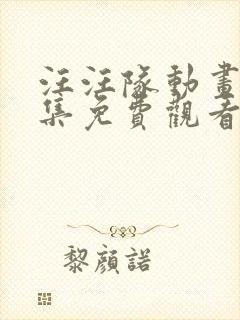 汪汪隊動畫
集免費觀看
黎顏諾